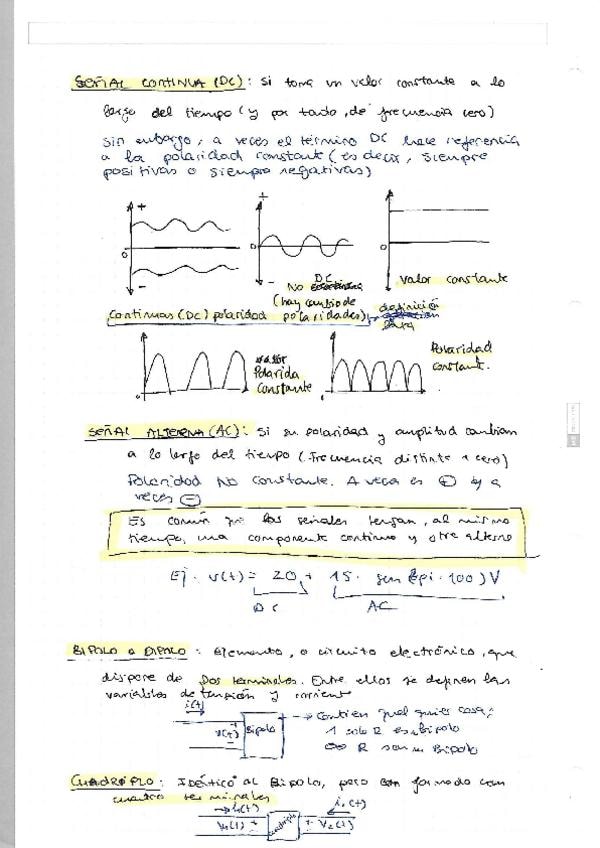 SEÑAL CONTINUA (DC): Si toma un valor constante a lo
largo del tiempo (y por tanto, de frecuencia cero)
Sin embargo, a veces el término DC hace referencia
a la polaridad constante (es decir, siempre
positivas o siempre negativas)
+
+
0
0
0
-
-
No DC
(hay cambio de
polaridades)
valor constante
Continuas (DC) polaridad
definición
para
Polarida
Constante
Polaridad
constante.
SEÑAL ALTERNA (AC): Si su polaridad y amplitud cambian
a lo largo del tiempo (frecuencia distinta a cero)
Polaridad NO constante. A veces es + y a
veces -
Es común que las señales tengan, al mismo
tiempo, una componente continua y otra alterna
Ej. v(t) = 20 + 15 · sen (2pi · 100) V
DC AC
BIPOLO o DIPOLO: Elemento, o circuito electrónico, que
dispone de Dos terminales. Entre ellos se definen las
variables de tensión y corriente
i(t)
v(t)
+
-
Bipolo
→ Contien cualquier cosa;
1 solo R es bipolo
∞ R son un Bipolo
CUADRIPLO: Idéntico al Bipolo, pero con formado con
cuatro terminales
i₁(t)
i₂(t)
V₁(t) +
+ V₂(t)